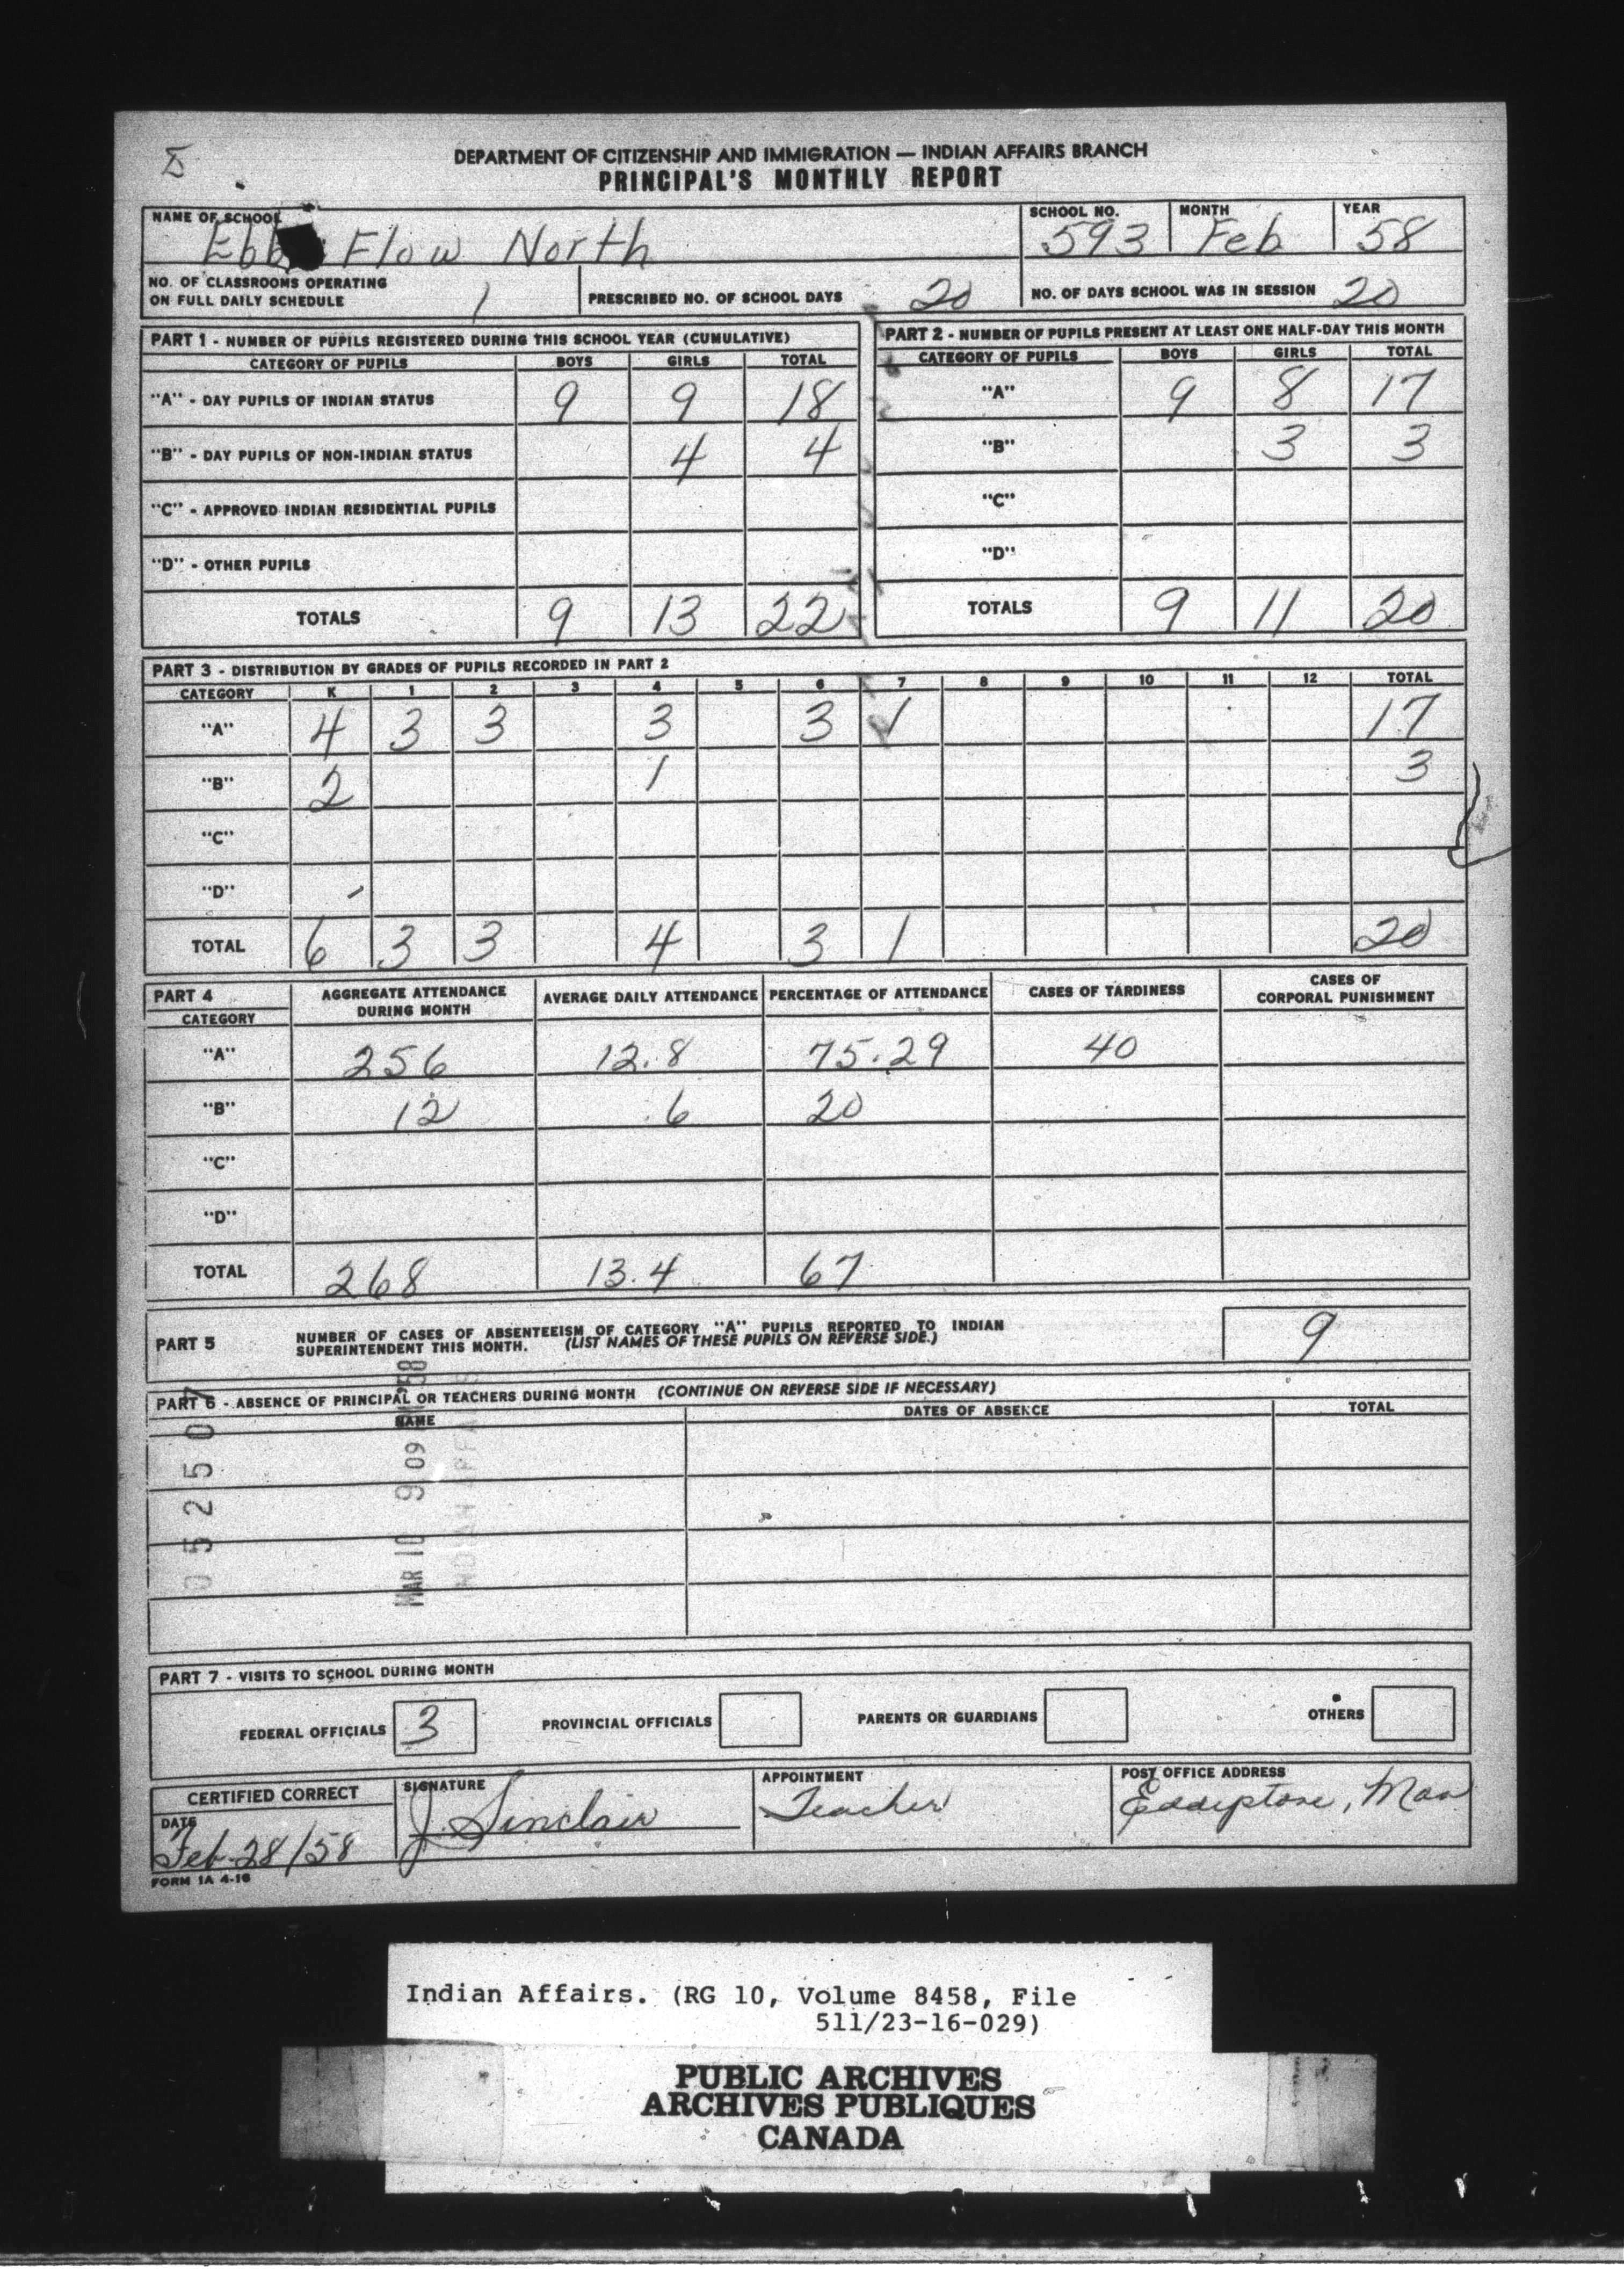 DEPARTMENT OF CITIZENSHIP AND IMMIGRATION — INDIAN AFFAIRS BRANCH
PRINCIPAL'S MONTHLY REPORT
NAME OF SCHOOL SCHOOL NO. MONTH YEAR
Ebb Flow North 593 Feb 58
NO. OF CLASSROOMS OPERATING ON FULL DAILY SCHEDULE 1 PRESCRIBED NO. OF SCHOOL DAYS 20 NO. OF DAYS SCHOOL WAS IN SESSION 20
PART 1 - NUMBER OF PUPILS REGISTERED DURING THIS SCHOOL YEAR (CUMULATIVE)
CATEGORY OF PUPILS BOYS GIRLS TOTAL
"A" - DAY PUPILS OF INDIAN STATUS 9 9 18
"B" - DAY PUPILS OF NON-INDIAN STATUS 4 4
"C" - APPROVED INDIAN RESIDENTIAL PUPILS
"D" - OTHER PUPILS
TOTALS 9 13 22
PART 2 - NUMBER OF PUPILS PRESENT AT LEAST ONE HALF-DAY THIS MONTH
CATEGORY OF PUPILS BOYS GIRLS TOTAL
"A" 9 8 17
"B" 3 3
"C"
"D"
TOTALS 9 11 20
PART 3 - DISTRIBUTION BY GRADES OF PUPILS RECORDED IN PART 2
CATEGORY K 1 2 3 4 5 6 7 8 9 10 11 12 TOTAL
"A" 4 3 3 3 3 1 17
"B" 2 1 3
"C"
"D"
TOTAL 6 3 3 4 3 1 20
PART 4
CATEGORY AGGREGATE ATTENDANCE DURING MONTH AVERAGE DAILY ATTENDANCE PERCENTAGE OF ATTENDANCE CASES OF TARDINESS CASES OF CORPORAL PUNISHMENT
"A" 256 12.8 75.29 40
"B" 12 .6 20
"C"
"D"
TOTAL 268 13.4 67
PART 5 NUMBER OF CASES OF ABSENTEEISM OF CATEGORY "A" PUPILS REPORTED TO INDIAN
SUPERINTENDENT THIS MONTH. (LIST NAMES OF THESE PUPILS ON REVERSE SIDE.) 9
PART 6 - ABSENCE OF PRINCIPAL OR TEACHERS DURING MONTH (CONTINUE ON REVERSE SIDE IF NECESSARY)
NAME DATES OF ABSENCE TOTAL
052507
MAR 10 9 09 AM '58
INDIAN AFFAIRS
PART 7 - VISITS TO SCHOOL DURING MONTH
FEDERAL OFFICIALS 3 PROVINCIAL OFFICIALS PARENTS OR GUARDIANS OTHERS
CERTIFIED CORRECT SIGNATURE APPOINTMENT POST OFFICE ADDRESS
DATE
Feb. 28/58 J. Sinclair Teacher Eddystone, Man
FORM IA 4-16
Indian Affairs. (RG 10, Volume 8458, File
511/23-16-029)
PUBLIC ARCHIVES
ARCHIVES PUBLIQUES
CANADA